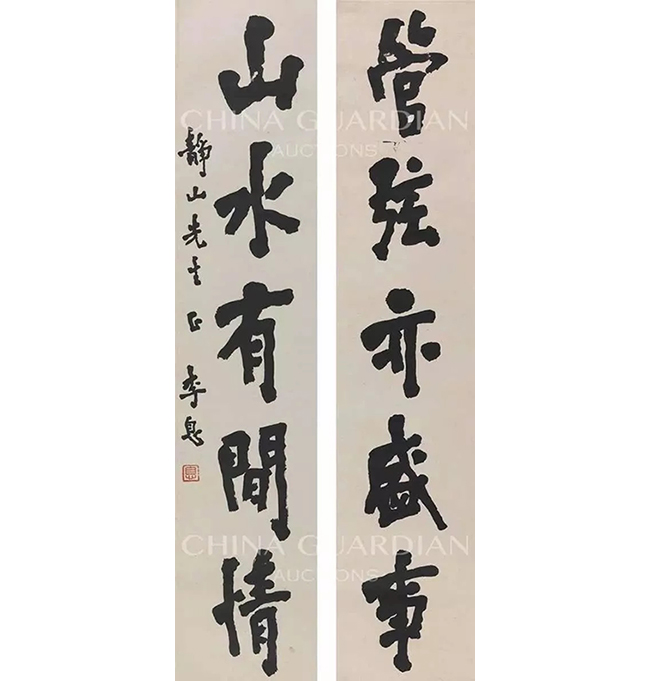 管弦亦盛事
山水有間情
靜山先生正 李息
息
CHINA GUARDIAN
AUCTIONS
CHINA GUARDIAN
AUCTIONS